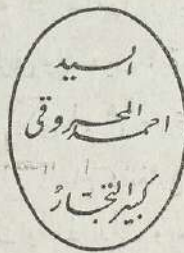 السيد
احمد المحروقى
كبير التجار